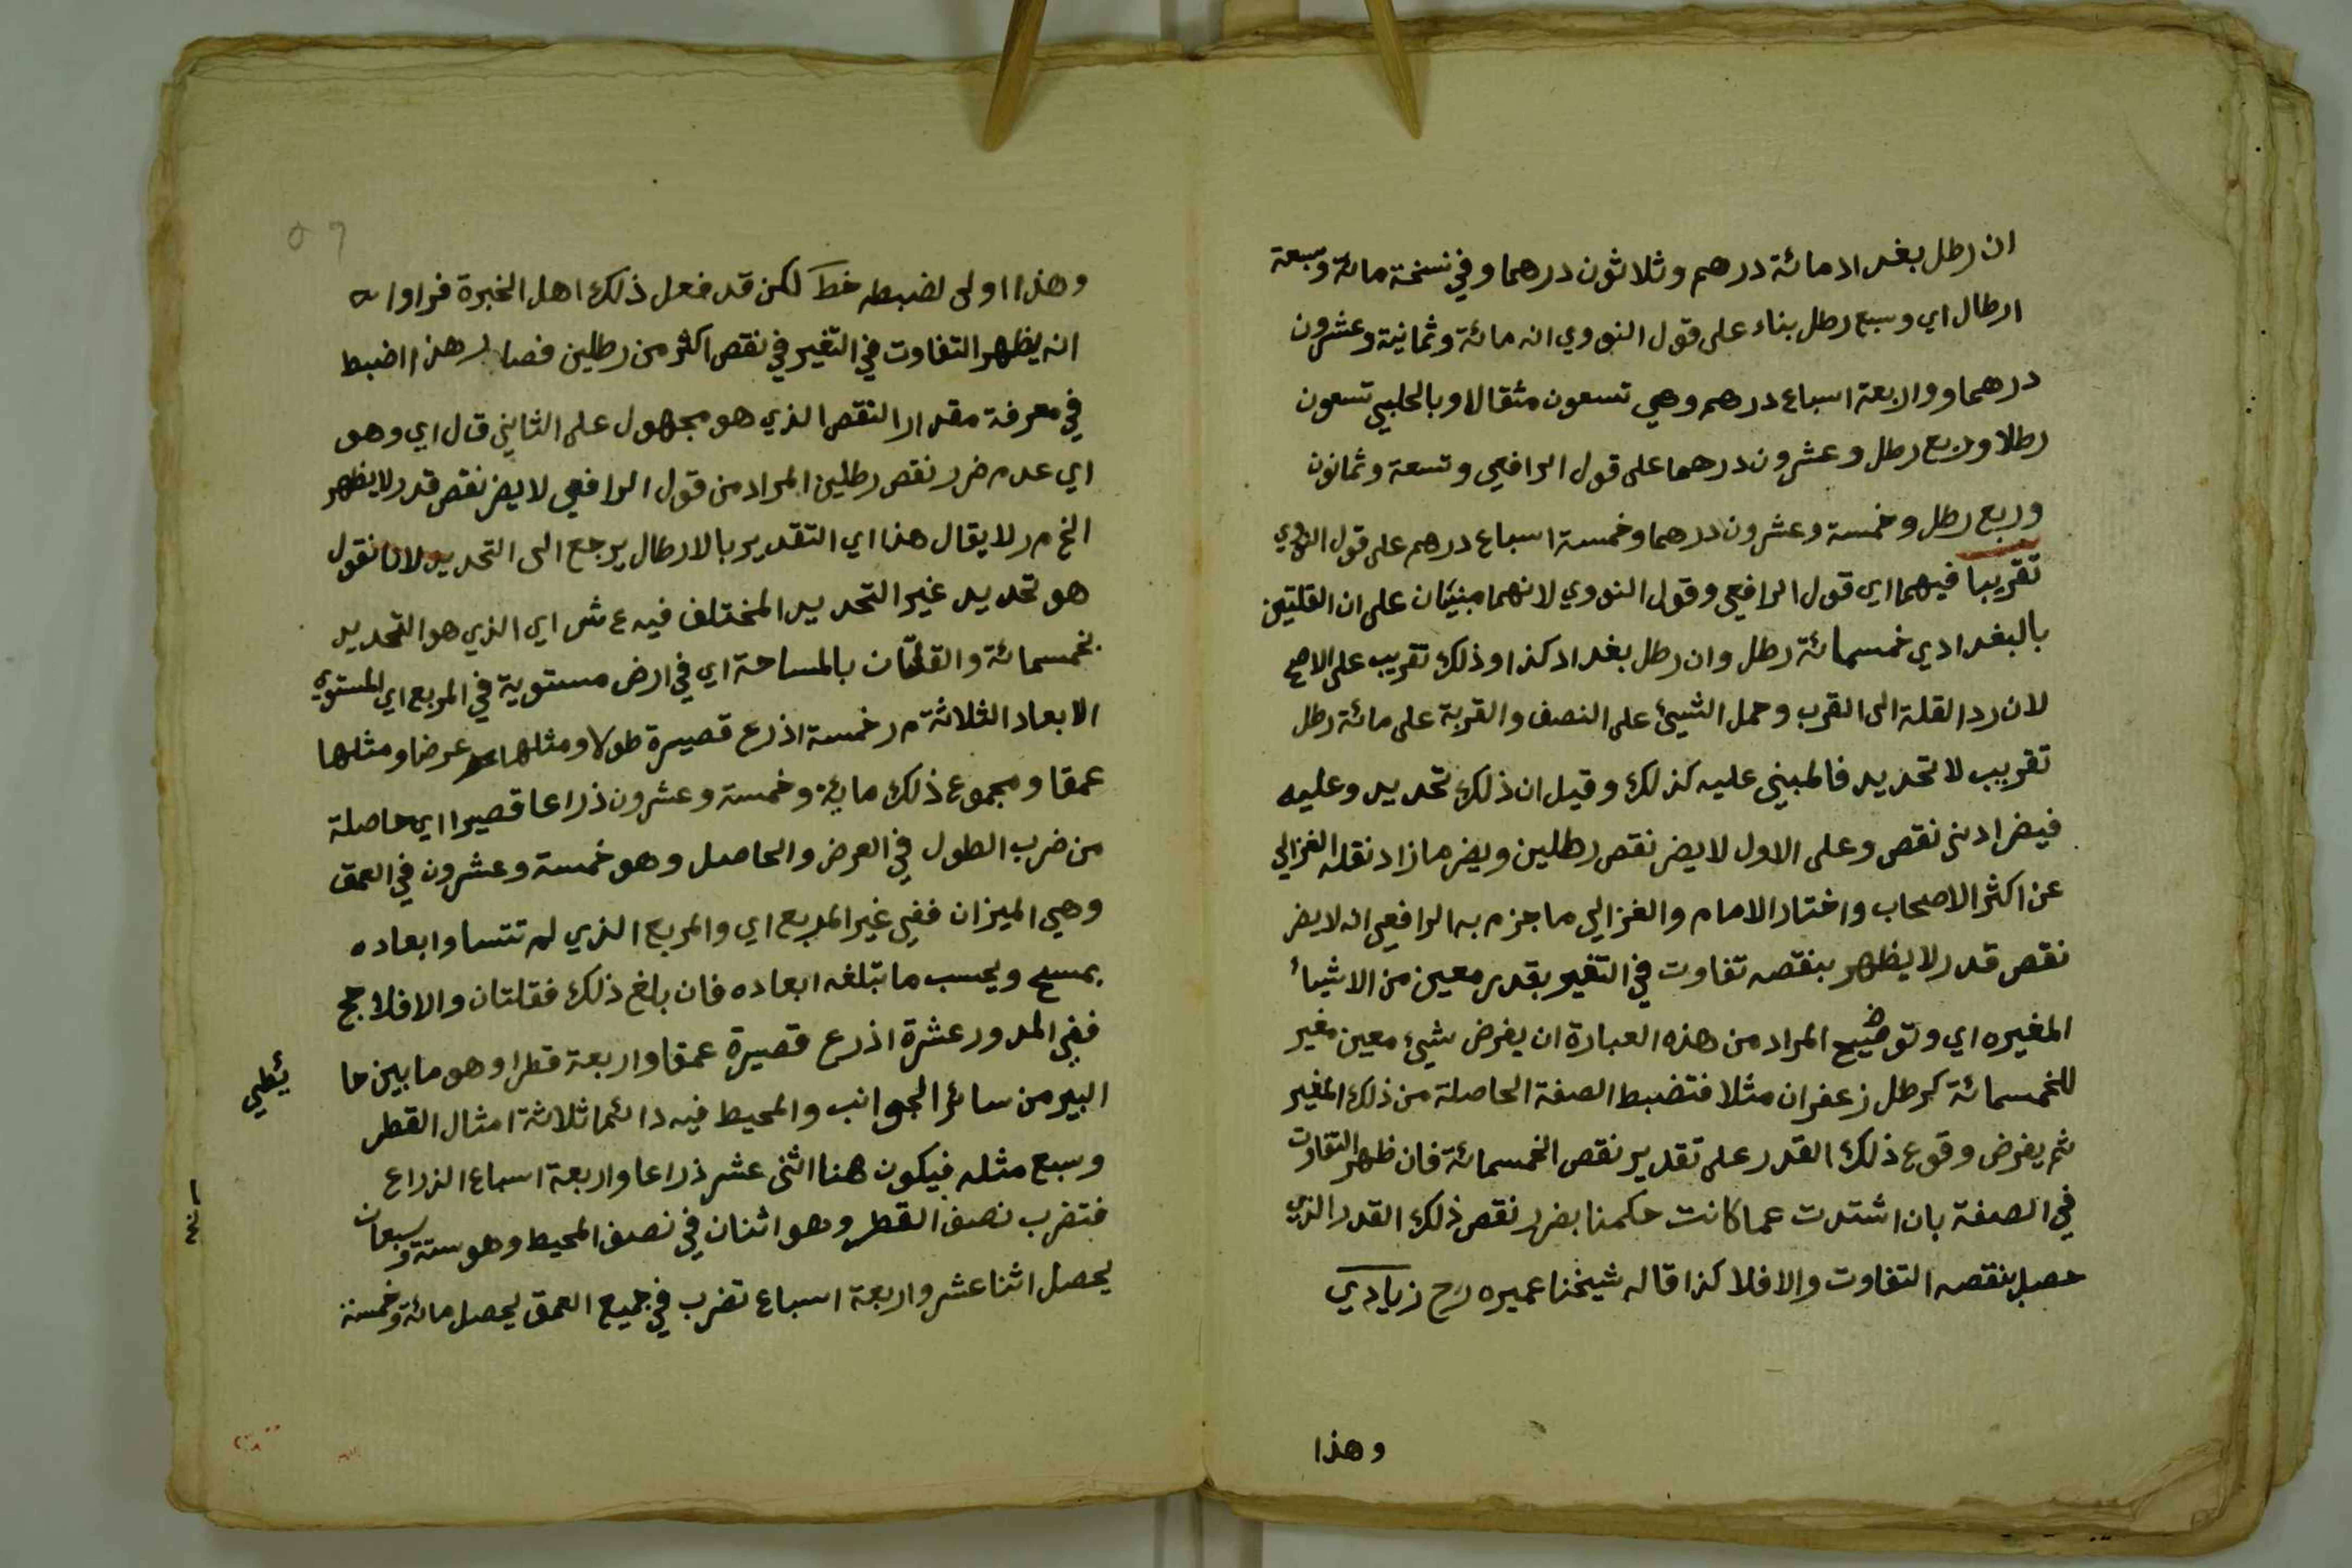 ان رطل بغداد مائة درهم وثلاثون درهما وفي نسخة مائة وسبعة
ارطال اي وسبع رطل بناء على قول النووي انه مائة وثمانية وعشرون
درهما وواربعة اسباع درهم وهي تسعون مثقالا وبالحلبي تسعون
رطلا وربع رطل وعشرون درهما على قول الرافعي وتسعة وثمانون
وربع رطل وخمسة وعشرون درهما وخمسة اسباع درهم على قول النووي
تقريبا فيهما اي قول الرافعي وقول النووي لانهما مبنيان على ان القلتين
بالبغدادي خمسمائة رطل وان رطل بغداد كذا وذلك تقريب على الاصح
لان رد القلة الى القرب وحمل الشيئ على النصف والقربة على مائة رطل
تقريب لا تحديد فالمبني عليه كذلك وقيل ان ذلك تحديد وعليه
فيضر ادنى نقص وعلى الاول لا يضر نقص رطلين ويضر ما زاد نقله الغزالي
عن اكثر الاصحاب واختار الامام والغزالي ما جزم به الرافعي انه لا يضر
نقص قدر لا يظهر بنقصه تفاوت في التغير بقدر معين من الاشياء
المغيره اي وتوضيح المراد من هذه العبارة ان يفرض شيئ معين مغير
للخمسمائة كرطل زعفران مثلا فتضبط الصفة الحاصلة من ذلك المغير
ثم يفرض وقوع ذلك القدر على تقدير نقص الخمسمائة فان ظهر التفاوت
في الصفة بان اشتدت عما كانت حكمنا بضرر نقص ذلك القدر الذي
حصل بنقصه التفاوت والا فلا كذا قاله شيخنا عميره رح زيادي
وهذا
٥٦
وهذا اولى لضبطه خط لكن قد فعل ذلك اهل الخبرة فراوا
انه يظهر التفاوت في التغير في نقص اكثر من رطلين فصار هذا اضبط
في معرفة مقدار النقص الذي هو مجهول على الثاني قال اي وهو
اي عدم ضرر نقص رطلين المراد من قول الرافعي لا يضر نقص قدر لا يظهر
الخ م ر لا يقال هذا اي التقدير بالارطال يرجع الى التحديد لانا نقول
هو تحديد غير التحديد المختلف فيه ع ش اي الذي هو التحديد
بخمسمائة والقلتان بالمساحة اي في ارض مستوية في المربع اي المستوي
الابعاد الثلاثة م ر خمسة اذرع قصيرة طولا ومثلها عرضا ومثلها
عمقا ومجموع ذلك مائة وخمسة وعشرون ذراعا قصيرا اي حاصلة
من ضرب الطول في العرض والحاصل وهو خمسة وعشرون في العمق
وهي الميزان ففي غير المربع اي والمربع الذي لم تتساوا ابعاده
يمسح ويحسب ما تبلغه ابعاده فان بلغ ذلك فقلتان والا فلا حج
ففي المدور عشرة اذرع قصيرة عمقا واربعة قطرا وهو ما بين حا يطي
البير من سائر الجوانب والمحيط فيه دائما ثلاثة امثال القطر
وسبع مثله فيكون هنا اثنى عشر ذراعا واربعة اسباع الذراع
فتضرب نصف القطر وهو اثنان في نصف المحيط وهو ستة وسبعان
يحصل اثنا عشر واربعة اسباع تضرب في جميع العمق يحصل مائة وخمسة